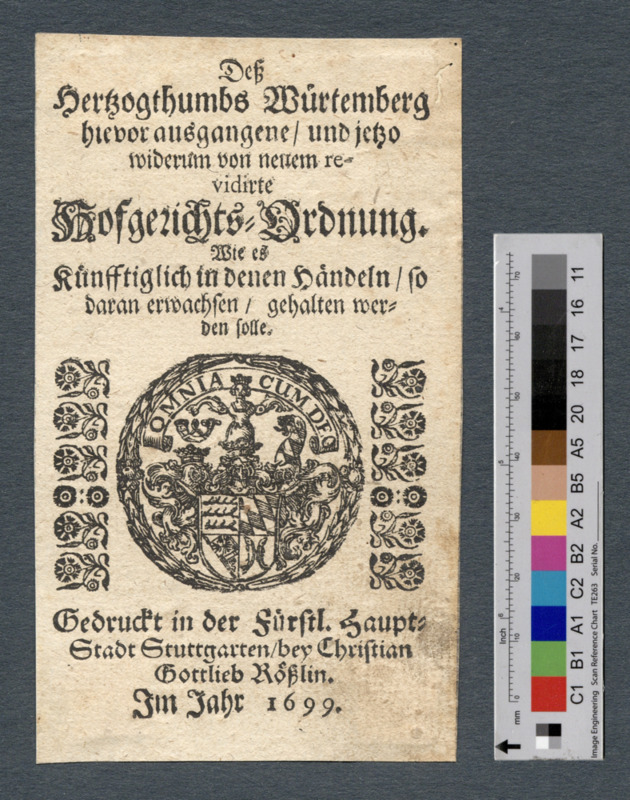 Deß
Hertzogthumbs Würtemberg
hievor ausgangene / und jetzo
widerum von neuem re-
vidirte
Hofgerichts-Ordnung.
Wie es
Künfftiglich in denen Händeln / so
daran erwachsen / gehalten wer-
den solle.
OMNIA CUM DEO
Gedruckt in der Fürstl. Haupt-
Stadt Stuttgarten / bey Christian
Gottlieb Rößlin.
Im Jahr 1699.
11
16
17
18
20
A5
B5
A2
B2
C2
A1
B1
C1
Image Engineering Scan Reference Chart TE263 Serial No.
inch
4
5
6
mm
70
60
50
40
30
20
10
0